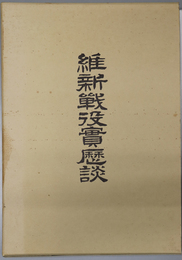 維新戰役實歷談